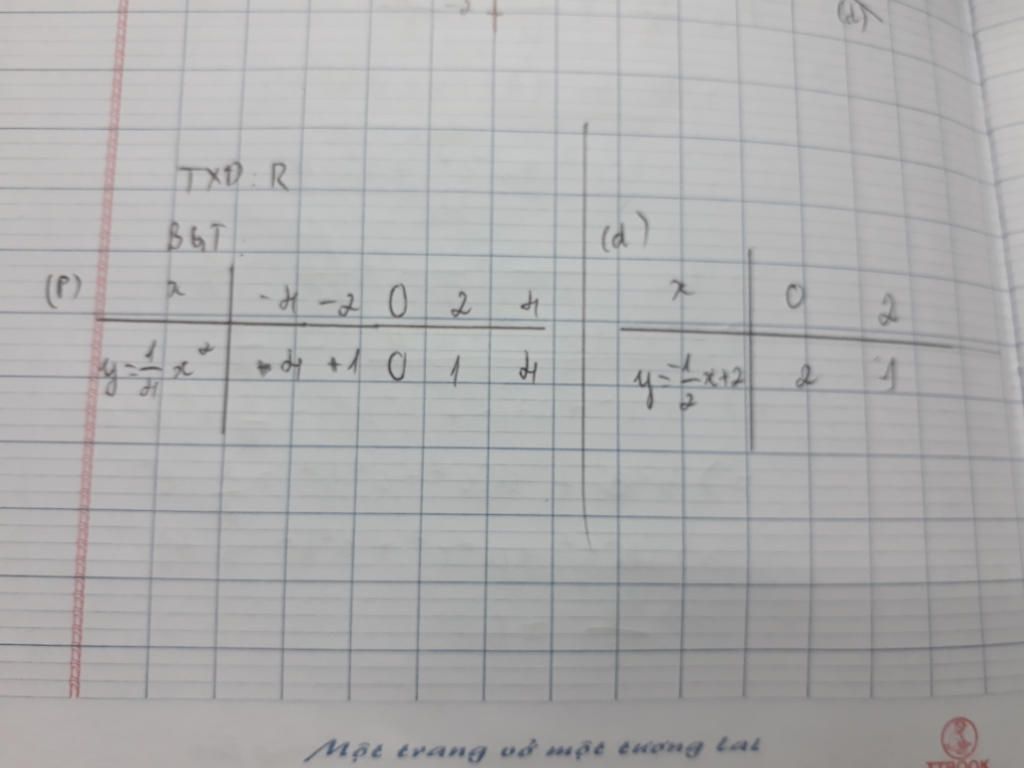 -2
(d)
TXD: R
BGT
(P) x -4 -2 0 2 4
y=1/4 x² 4 +1 0 1 4
(d)
x 0 2
y=-1/2 x+2 2 1
Một trang vở một tương lai
TTBOOK